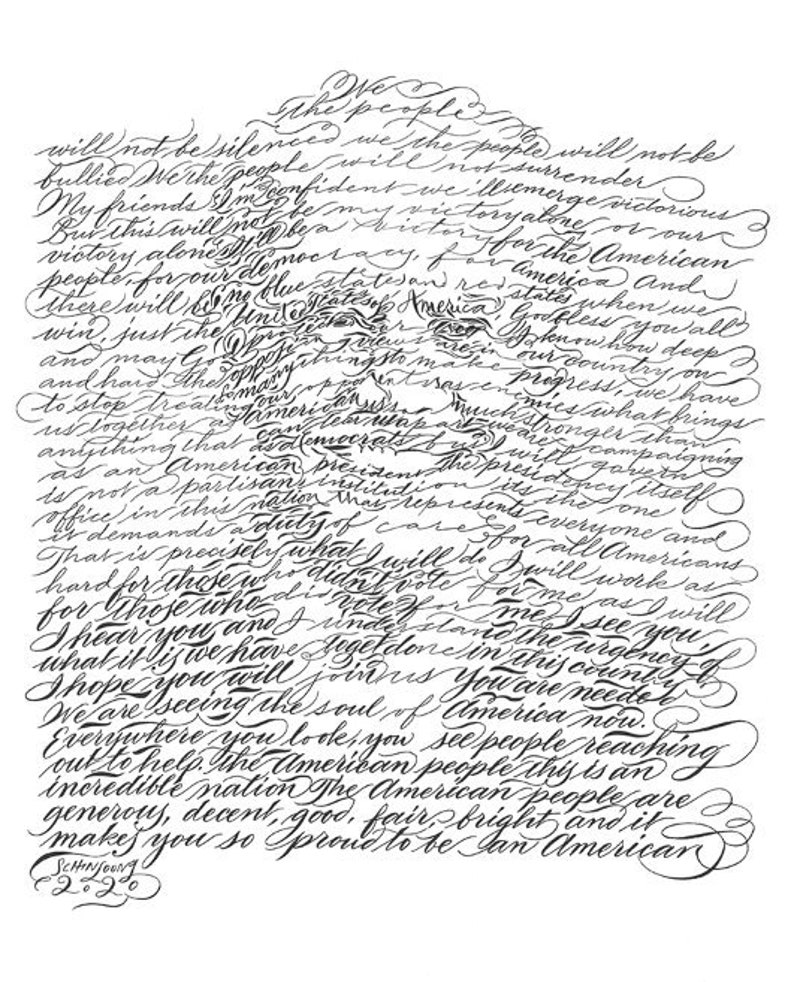 We
the people
will not be silenced we the people will not be
bullied We the people will not surrender
My friends I'm confident we'll emerge victorious
But this will not be my victory alone, or our
victory alone. It'll be a victory for the American
people, for our democracy, for America And
there will be no blue states and red states when we
win, just the United States of America. God bless you all
and may God protect our troops I know how deep
and hard the opposing views are in our country on
so many things to make progress, we have
to stop treating our opponents as enemies what brings
us together as Americans is much stronger than
anything that can tear us apart we are campaigning
as a democrat but I will govern
as an American president the presidency itself
is not a partisan institution its the one
office in this nation that represents everyone and
it demands a duty of care for all Americans
That is precisely what I will do I will work as
hard for those who didn't vote for me as I will
for those who did vote for me I see you,
I hear you and I understand the urgency of
what it is we have to get done in this country
I hope you will join us You are needed
We are seeing the soul of America now.
Everywhere you look, you see people reaching
out to help. the American people this is an
incredible nation The American people are
generous, decent, good, fair, bright and it
makes you so proud to be an American
SCHINJOONG
2020